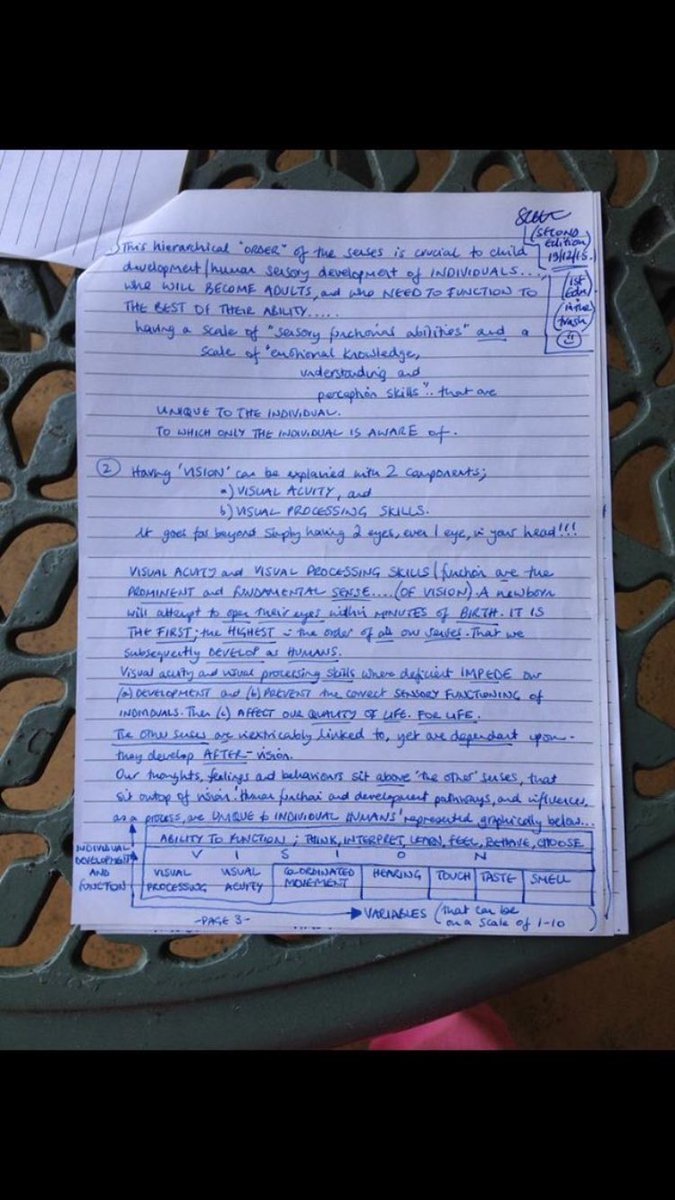 (SECOND
Edition)
19/12/15.
(1st
Edn.
in the
trash)
This hierarchical "ORDER" of the senses is crucial to child
development/human sensory development of INDIVIDUALS...,
who WILL BECOME ADULTS, and who NEED TO FUNCTION TO
THE BEST OF THEIR ABILITY.....
having a scale of "sensory functional abilities" and a
scale of "emotional knowledge,
understanding and
perception skills".. that are
UNIQUE TO THE INDIVIDUAL.
TO WHICH ONLY THE INDIVIDUAL IS AWARE OF.
② Having 'VISION' can be explained with 2 components;
a) VISUAL ACUITY, and
b) VISUAL PROCESSING SKILLS.
It goes far beyond simply having 2 eyes, even 1 eye, in your head!!!
VISUAL ACUITY and VISUAL PROCESSING SKILLS/function are the
PROMINENT and FUNDAMENTAL SENSE....(OF VISION). A newborn
will attempt to open their eyes within MINUTES of BIRTH. IT IS
THE FIRST; the HIGHEST in the order of all our senses. That we
subsequently DEVELOP as HUMANS.
Visual acuity and visual processing skills where deficient IMPEDE our
(a) DEVELOPMENT and (b) PREVENT the correct SENSORY FUNCTIONING of
INDIVIDUALS. Then (c) AFFECT OUR QUALITY OF LIFE. FOR LIFE.
The other senses are inextricably linked to, yet are dependant upon -
they develop AFTER - vision.
Our thoughts, feelings and behaviours sit above 'the other' senses, that
sit ontop of vision. function and development pathways, and influences
as a process, are UNIQUE to INDIVIDUAL HUMANS' represented graphically below...
INDIVIDUAL
DEVELOPMENT
AND
FUNCTION
ABILITY TO FUNCTION; THINK, INTERPRET, LEARN, FEEL, BEHAVE, CHOOSE
V I S I O N
VISUAL PROCESSING VISUAL ACUITY CO-ORDINATED MOVEMENT HEARING TOUCH TASTE SMELL
VARIABLES (that can be
on a scale of 1-10)
-PAGE 3-